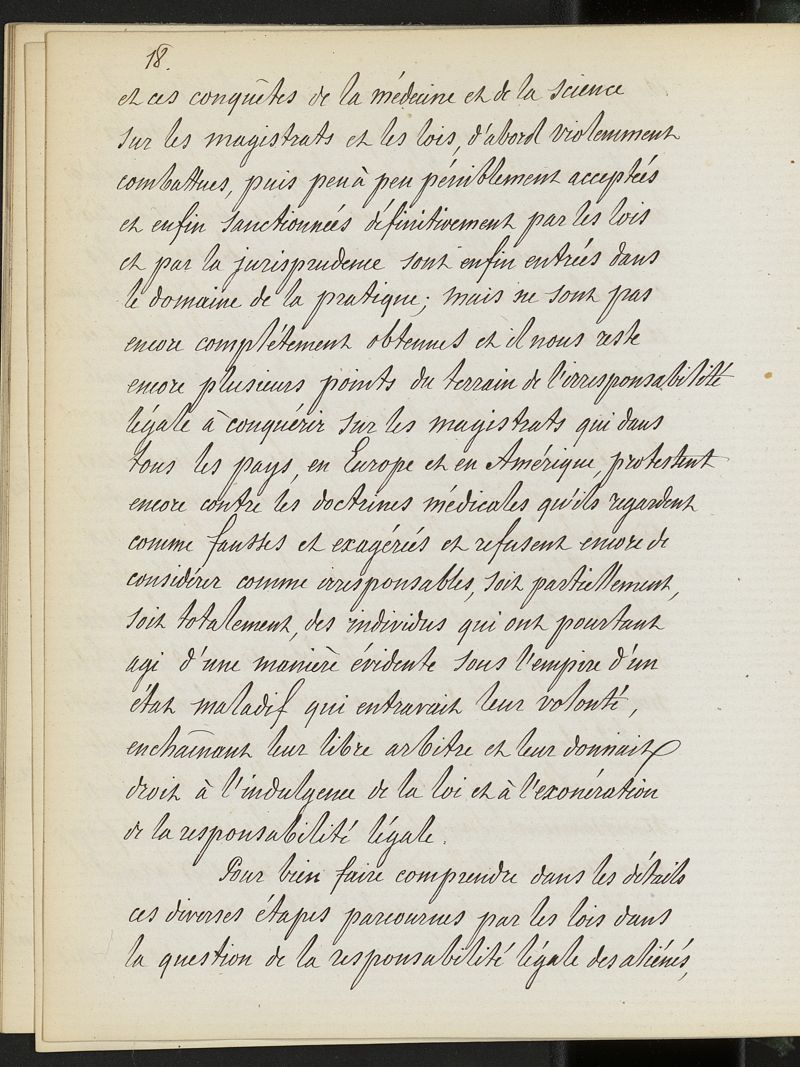 18.
et ces conquêtes de la médecine et de la science
sur les magistrats et les lois, d'abord violemment
combattues, puis peu à peu péniblement acceptées
et enfin sanctionnées définitivement par les lois
et par la jurisprudence sont enfin entrées dans
le domaine de la pratique; mais ne sont pas
encore complétement obtenues et il nous reste
encore plusieurs points du terrain de l'irresponsabilité
légale à conquérir sur les magistrats qui dans
tous les pays, en Europe et en Amérique, protestent
encore contre les doctrines médicales qu'ils regardent
comme fausses et exagérées et refusent encore de
considérer comme irresponsables, soit partiellement,
soit totalement, des individus qui ont pourtant
agi d'une manière évidente sous l'empire d'un
état maladif qui entravait leur volonté,
enchaînant leur libre arbitre et leur donnait
droit à l'indulgence de la loi et à l'exonération
de la responsabilité légale.
Pour bien faire comprendre dans les détails
ces diverses étapes parcourues par les lois dans
la question de la responsabilité légale des aliénés,